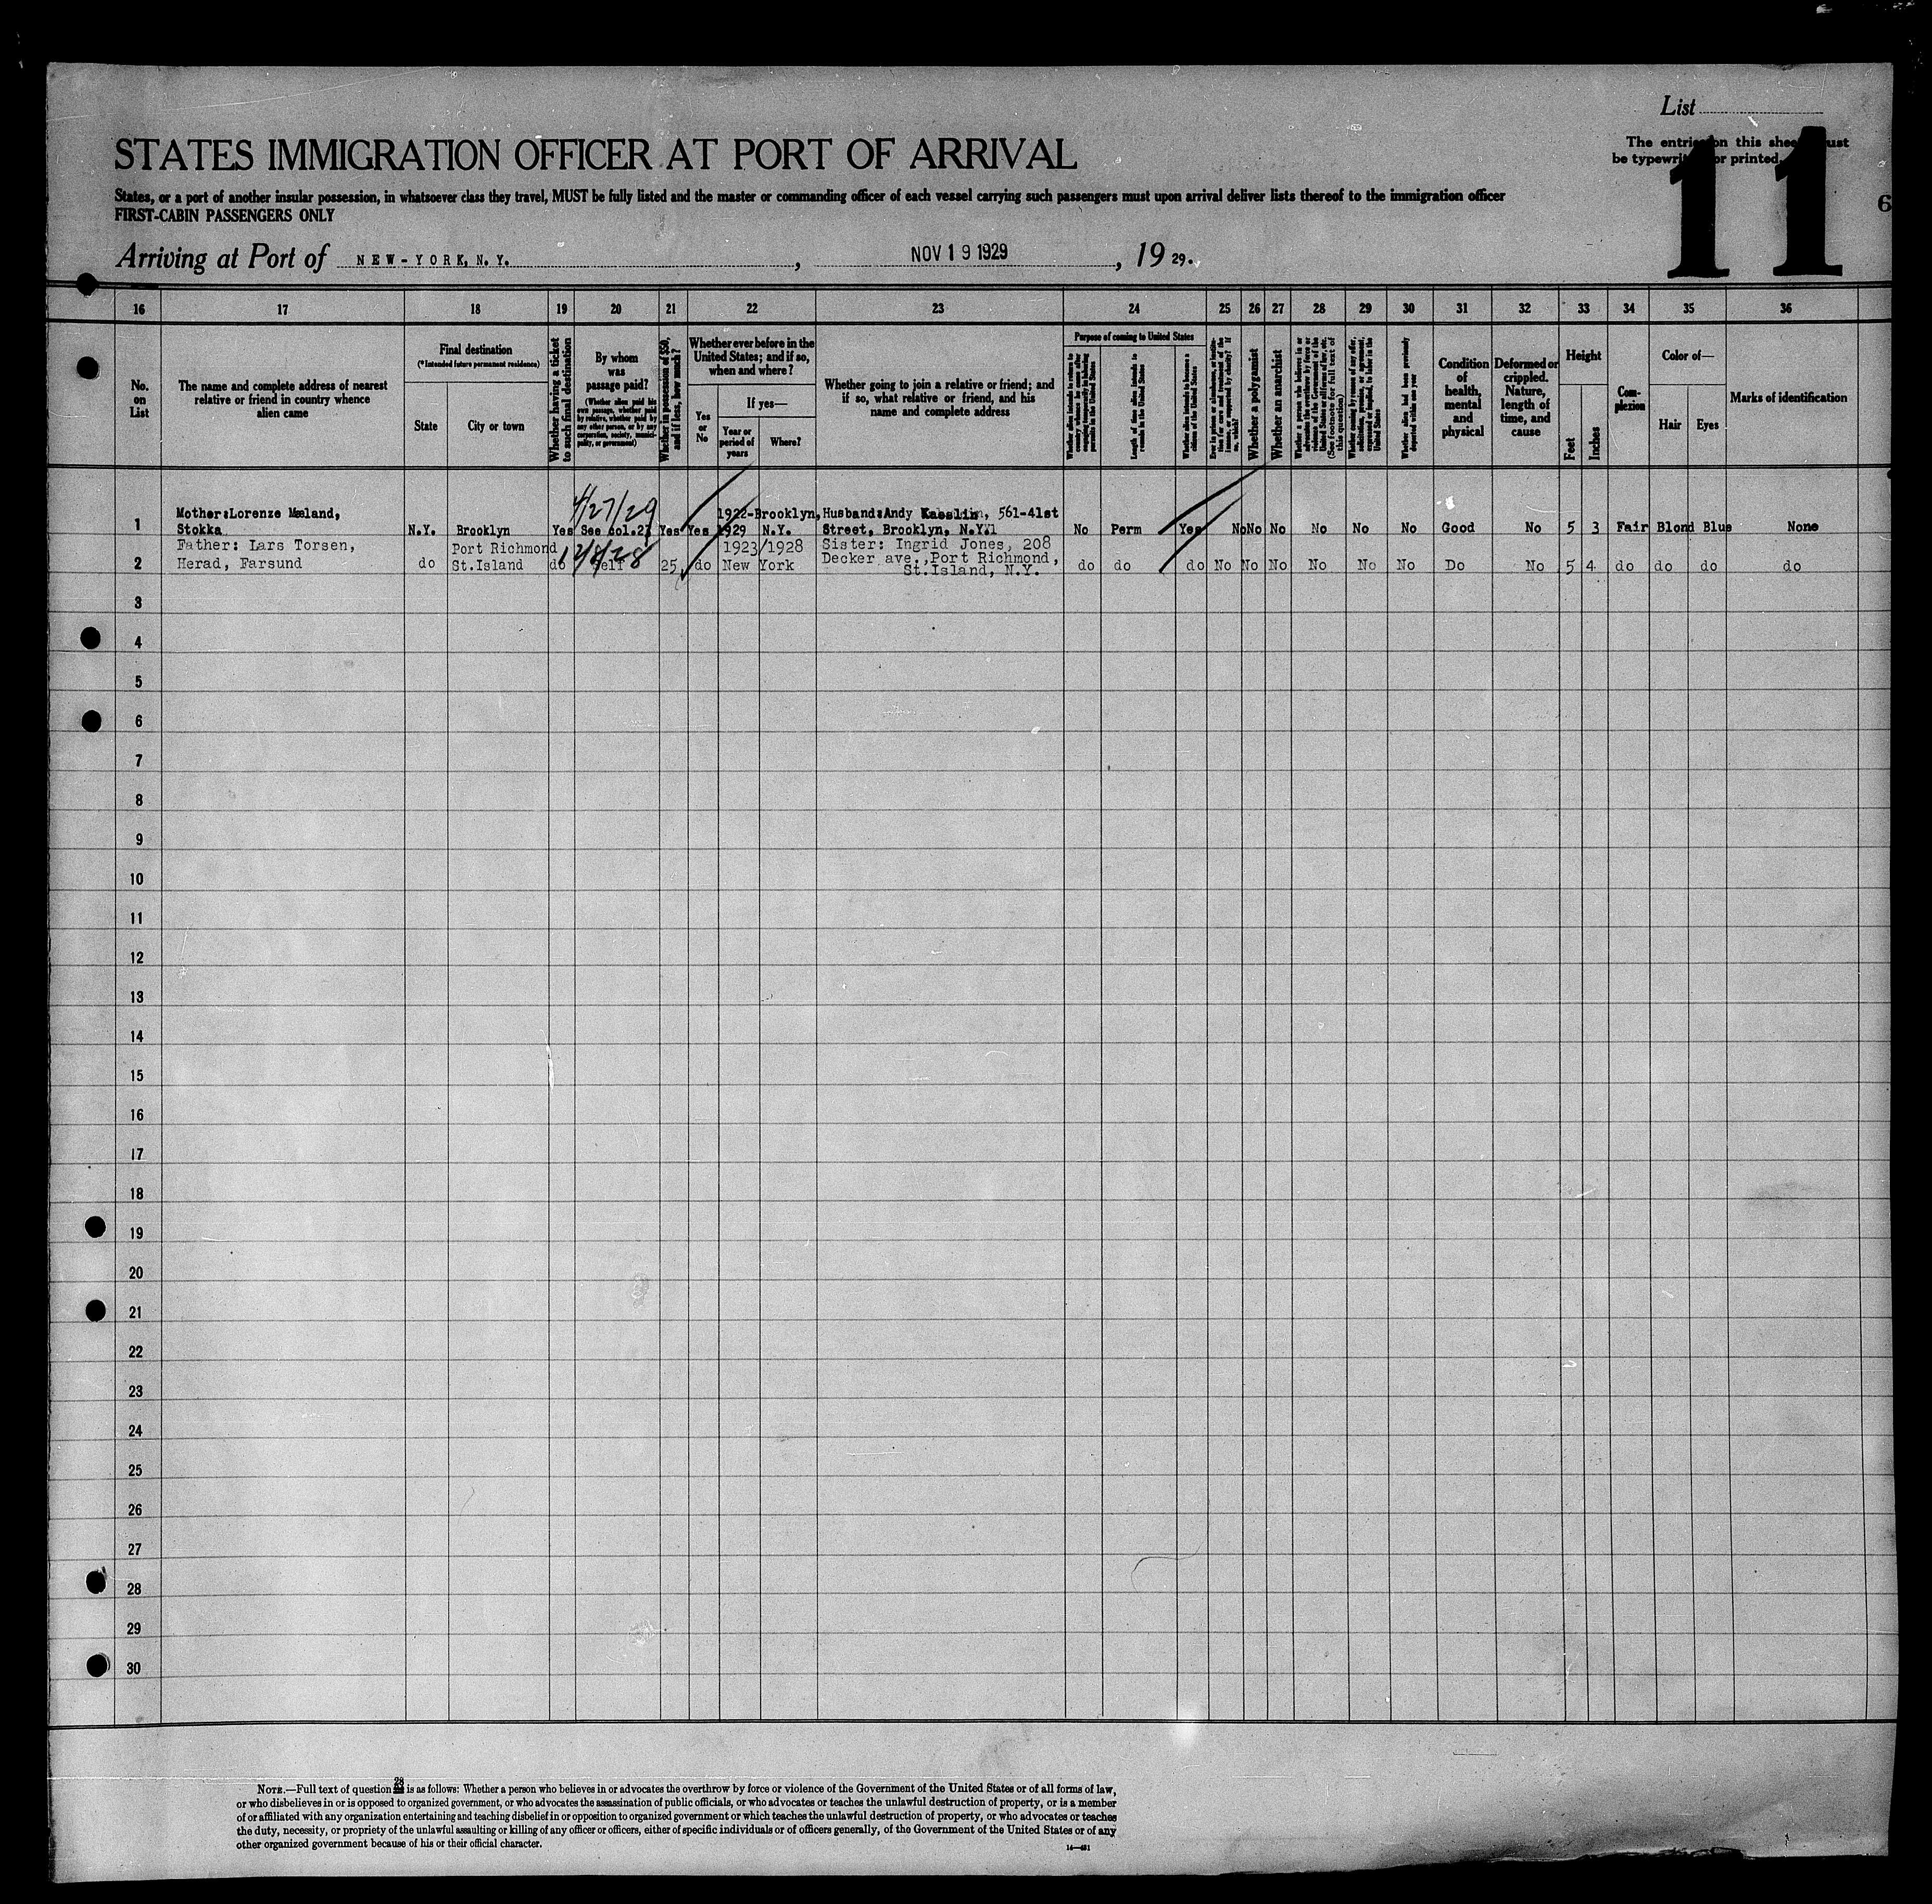 List
STATES IMMIGRATION OFFICER AT PORT OF ARRIVAL
The entries on this sheet must
be typewritten or printed.
11
6
States, or a port of another insular possession, in whatsoever class they travel, MUST be fully listed and the master or commanding officer of each vessel carrying such passengers must upon arrival deliver lists thereof to the immigration officer
FIRST-CABIN PASSENGERS ONLY
Arriving at Port of NEW-YORK, N.Y. , NOV 19 1929 , 19 29.
16 17 18 19 20 21 22 23 24 25 26 27 28 29 30 31 32 33 34 35 36
No. on List
The name and complete address of nearest relative or friend in country whence alien came
Final destination
(*Intended future permanent residence)
State
City or town
Whether having a ticket to such final destination
By whom was passage paid?
(Whether alien paid his own passage, whether paid by relative, whether paid by any other person, or by any corporation, society, municipality, or government)
Whether in possession of $50, and if less, how much?
Whether ever before in the United States; and if so, when and where?
Yes or No
If yes—
Year or period of years
Where?
Whether going to join a relative or friend; and if so, what relative or friend, and his name and complete address
Purpose of coming to United States
Length of time alien intends to remain in the United States
Whether a polygamist
Whether an anarchist
(See footnote for full text of this question)
Whether alien had been previously deported within one year
Condition of health, mental and physical
Deformed or crippled. Nature, length of time, and cause
Height
Feet
Inches
Complexion
Color of—
Hair
Eyes
Marks of identification
4/27/29
1 Mother:Lorenze Mæland, Stokka N.Y. Brooklyn Yes See col.23 Yes Yes 1922-1929 Brooklyn, N.Y. Husband:Andy 561-41st Street, Brooklyn, N.Y. No Perm Yes No No No No No No Good No 5 3 Fair Blond Blue None
12/8/28
2 Father: Lars Torsen, Herad, Farsund do Port Richmond St.Island do Self 25, do 1923/1928 New York Sister: Ingrid Jones, 208 Decker ave.,Port Richmond, St.Island, N.Y. do do do No No No No No No Do No 5 4 do do do do
3
4
5
6
7
8
9
10
11
12
13
14
15
16
17
18
19
20
21
22
23
24
25
26
27
28
29
30
28
NOTE.—Full text of question is as follows: Whether a person who believes in or advocates the overthrow by force or violence of the Government of the United States or of all forms of law,
or who disbelieves in or is opposed to organized government, or who advocates the assassination of public officials, or who advocates or teaches the unlawful destruction of property, or is a member
of or affiliated with any organization entertaining and teaching disbelief in or opposition to organized government or which teaches the unlawful destruction of property, or who advocates or teaches
the duty, necessity, or propriety of the unlawful assaulting or killing of any officer or officers, either of specific individuals or of officers generally, of the Government of the United States or of any
other organized government because of his or their official character.
14—431